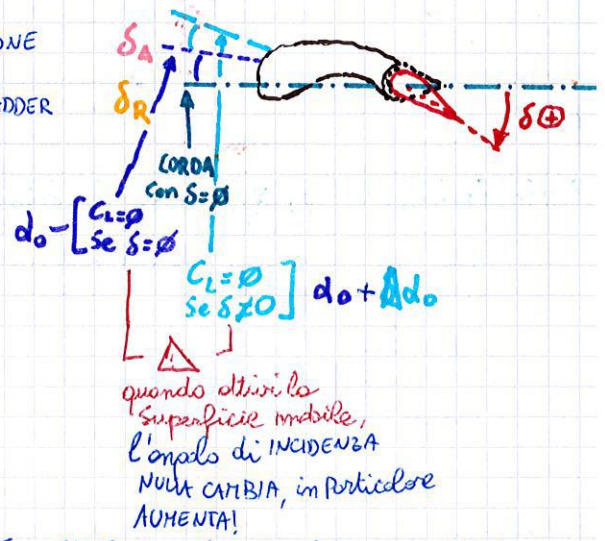 ONE
δA
DDER
δR
δ⊕
CORDA
con δ=ø
α₀-[CL=ø
se δ=ø
CL=ø
se δ≠0] α₀+Δα₀
!
quando attivi la
superficie mobile,
l'angolo di INCIDENZA
NULLA CAMBIA, in Particolare
AUMENTA!